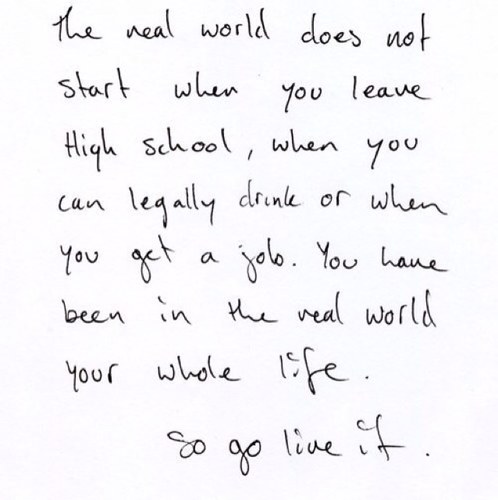 The real world does not
start when you leave
High school, when you
can legally drink or when
you get a job. You have
been in the real world
your whole life.
So go live it.